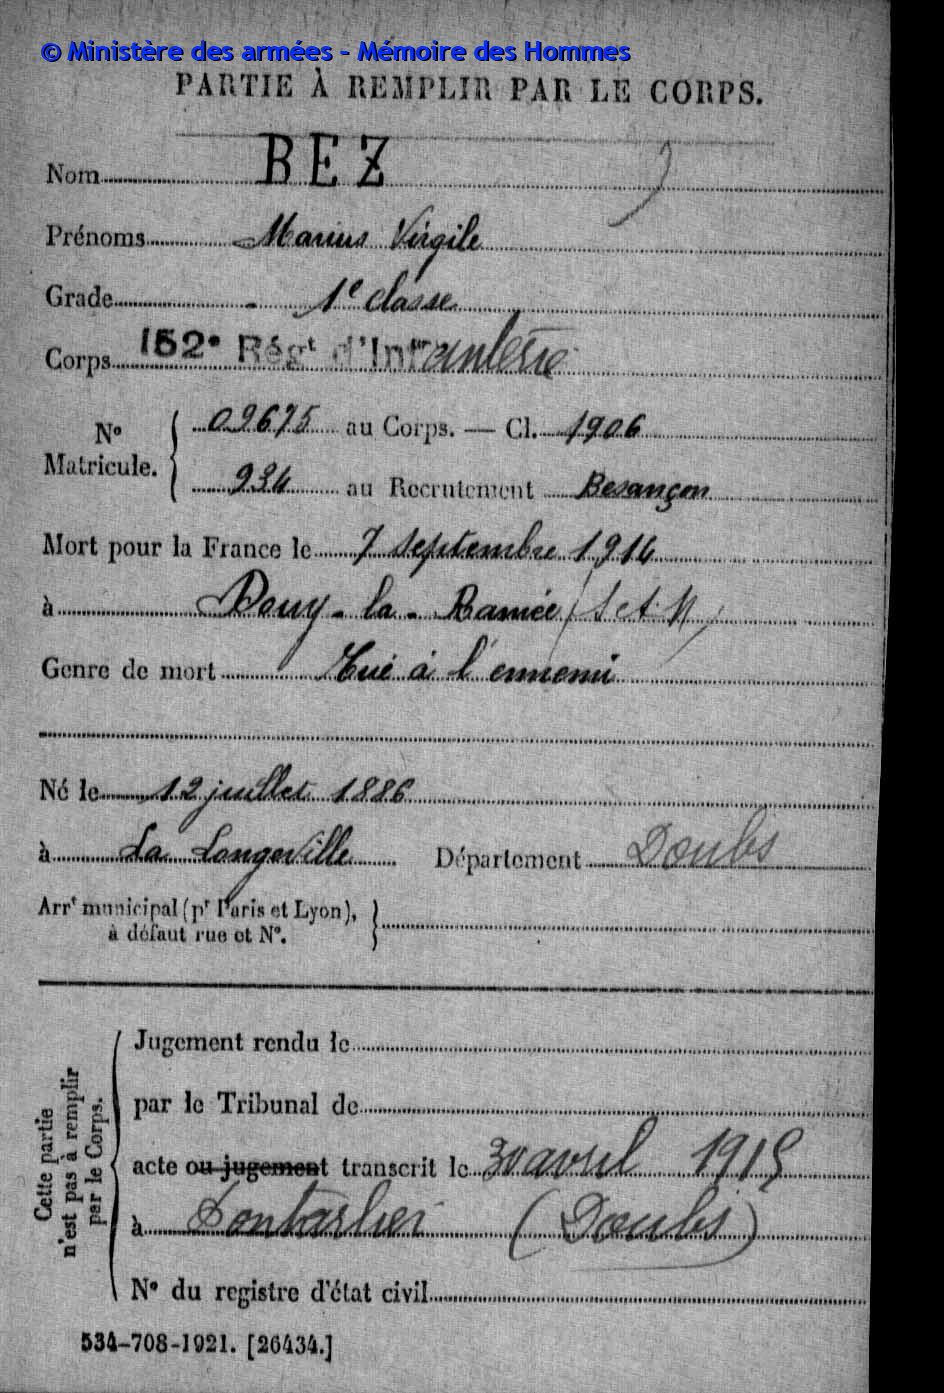 © Ministère des armées - Mémoire des Hommes
PARTIE À REMPLIR PAR LE CORPS.
Nom BEZ
Prénoms Marius Virgile
Grade 1e classe
Corps 152e Régt d'Infanterie
No Matricule. { 09675 au Corps. — Cl. 1906
934 au Recrutement Besançon
Mort pour la France le 7 septembre 1914
à Douy-la-Ramée (S et M)
Genre de mort Tué à l'ennemi
Né le 12 juillet 1886
à La Longeville Département Doubs
Arrt municipal (pr Paris et Lyon),
à défaut rue et No.
Cette partie n'est pas à remplir par le Corps.
Jugement rendu le
par le Tribunal de
acte ou jugement transcrit le 30 avril 1915
à Pontarlier (Doubs)
No du registre d'état civil
534-708-1921. [26434.]